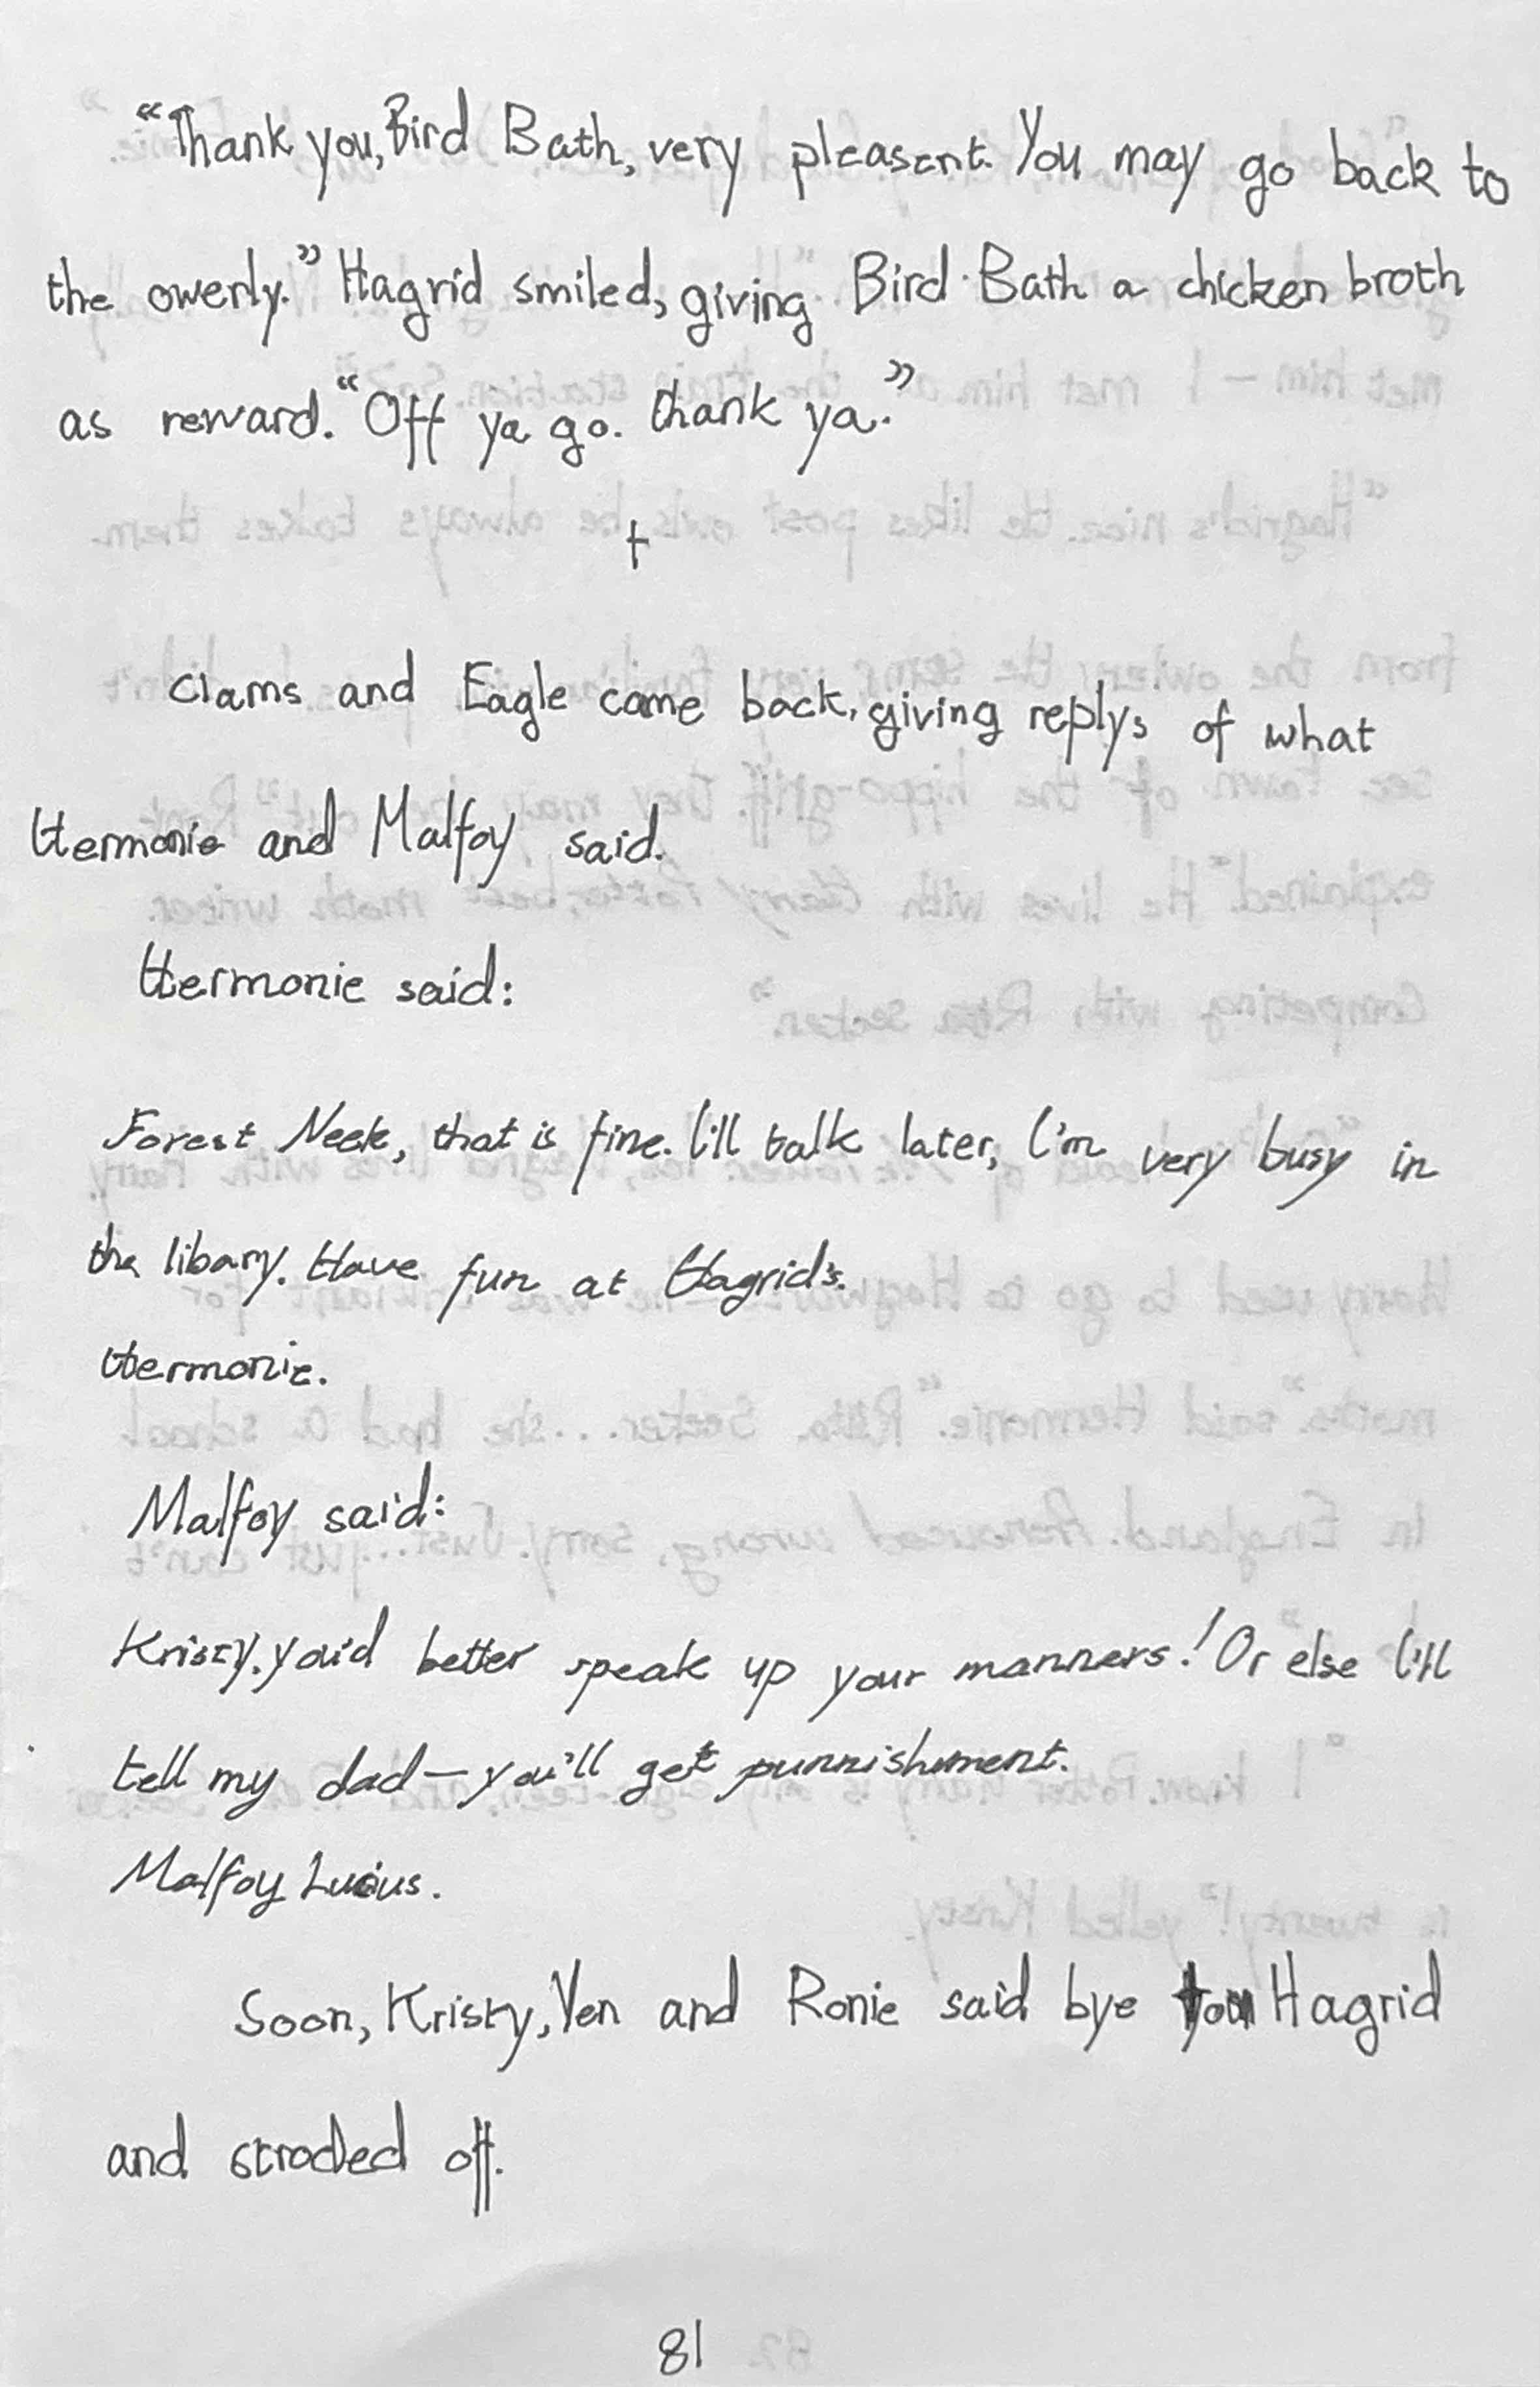 “Thank you, Bird Bath, very pleasent. You may go back to
the owerly.” Hagrid smiled, giving Bird Bath a chicken broth
as reward. “Off ya go. thank ya.”
+
Clams and Eagle came back, giving replys of what
Hermonie and Malfoy said.
Hermonie said:
Forest Neek, that is fine. I'll talk later, I'm very busy in
the libary. Have fun at Hagrid's.
Hermonie.
Malfoy said:
Kristy, you'd better speak up your manners! Or else I'll
tell my dad — you'll get punnishment.
Malfoy Lucius.
Soon, Kristy, Yen and Ronie said bye to Hagrid
and stroded off.
81